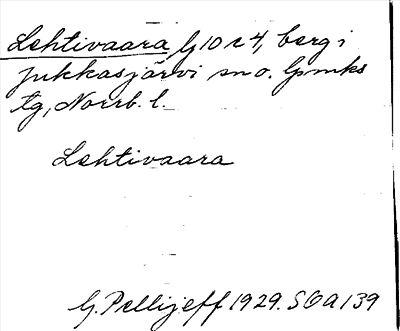 Lehtivaara G 10 r 4, berg i
Jukkasjärvi sn o. lpmks
tg, Norrb. l.
Lehtivaara
G. Pellijeff 1929. SOA 139